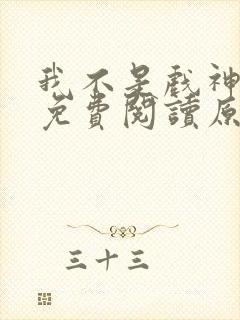 我不是戲神
免費閱讀原
三十三